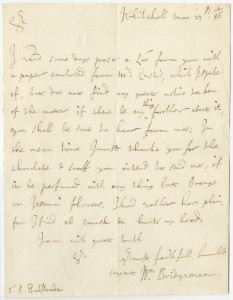 Whitehall Mar 29th 86
Sr
I recd some days past a Lre from you with
a paper enclosed from Mr Curtis, which I spoke
of, but doe not find any great notice taken
of the matter if there be any thing further done it
you shall be sure to hear from me; In
the mean time I must thanke you for the
chocolate & snuff you intend to send me, if
it be perfumed with any thing but Orange
or Jasmin flowers, I had rather have plain,
for I find all much to hurt my head.
I am with great truth
Sr
Yr most faithfull humble
servant Wm Bridgeman
Sr R. Bulstrode